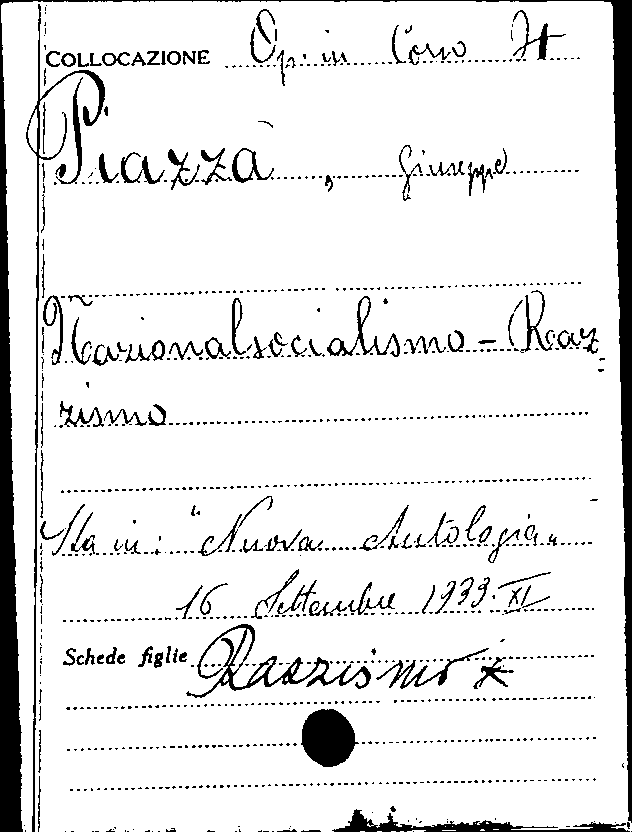 COLLOCAZIONE Op. in Corso It
Piazza, Giuseppe
Nazionalsocialismo - Raz=
zismo
Sta in: "Nuova Antologia"
16 Settembre 1933.XI
Schede figlie Razzismo x